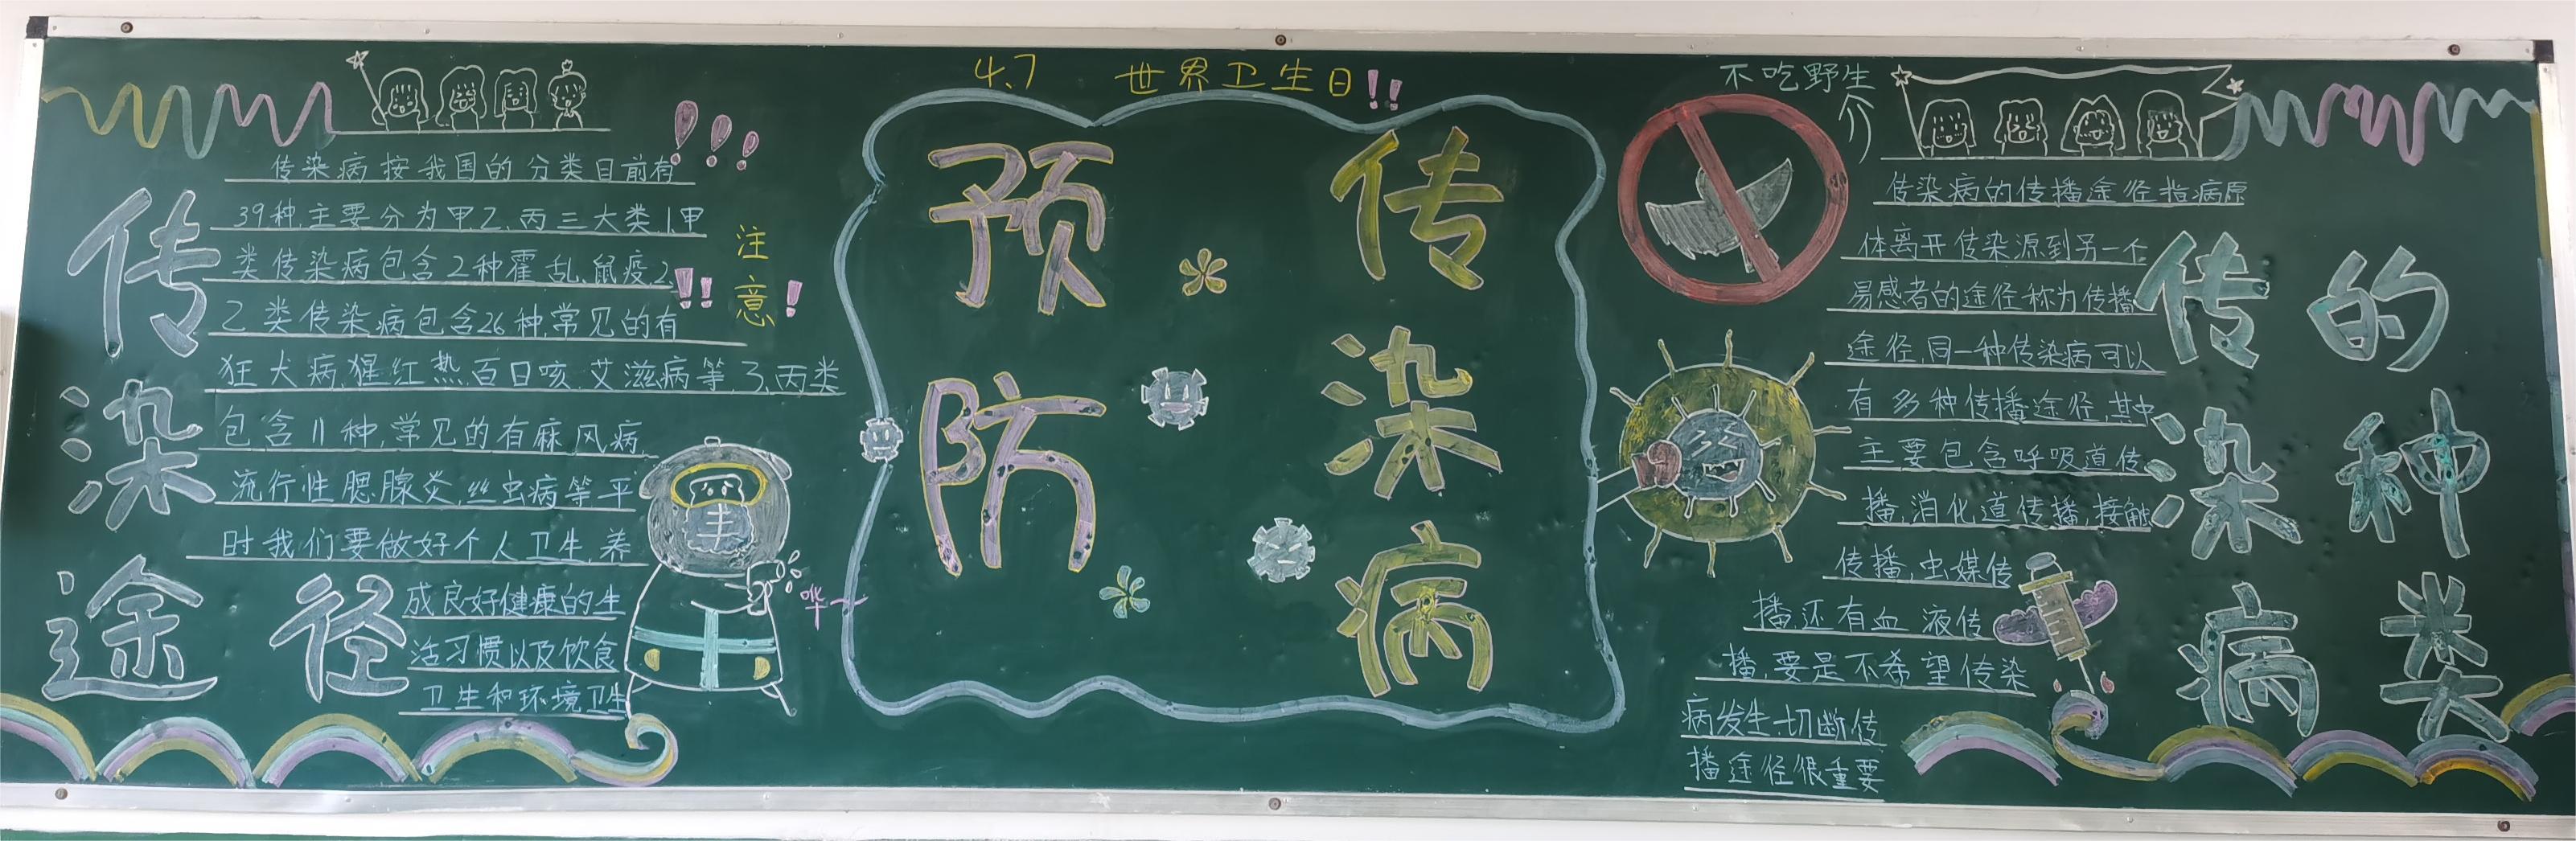 4.7 世界卫生日!!
预防
传染病
传染途径
传染病按我国的分类目前有
39种,主要分为甲.乙、丙三大类1.甲
类传染病包含2种霍乱、鼠疫2.
乙类传染病包含26种,常见的有
狂犬病.猩红热.百日咳.艾滋病等.3.丙类
包含11种,常见的有麻风病
流行性腮腺炎.丝虫病等平
时我们要做好个人卫生.养
成良好健康的生
活习惯以及饮食
卫生和环境卫生
!!!
注意!
!!
哗~
不吃野生
传染病的种类
传染病的传播途径指病原
体离开传染源到另一个
易感者的途径称为传播
途径,同一种传染病可以
有多种传播途径,其中
主要包含呼吸道传
播,消化道传播,接触
传播,虫媒传
播,还有血液传
播,要是不希望传染
病发生.切断传
播途径很重要